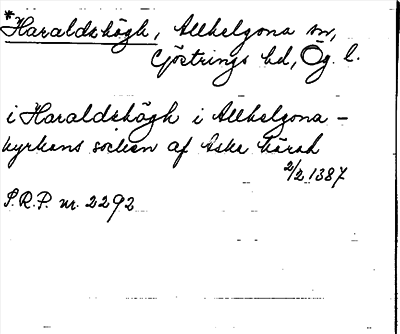 *Haraldshögh, Allhelgona sn,
Göstrings hd, Ög. l.
i Haraldshögh i Allhelgona-
kyrkans socken af Aska härad
2/2 1387
S.R.P. nr. 2292